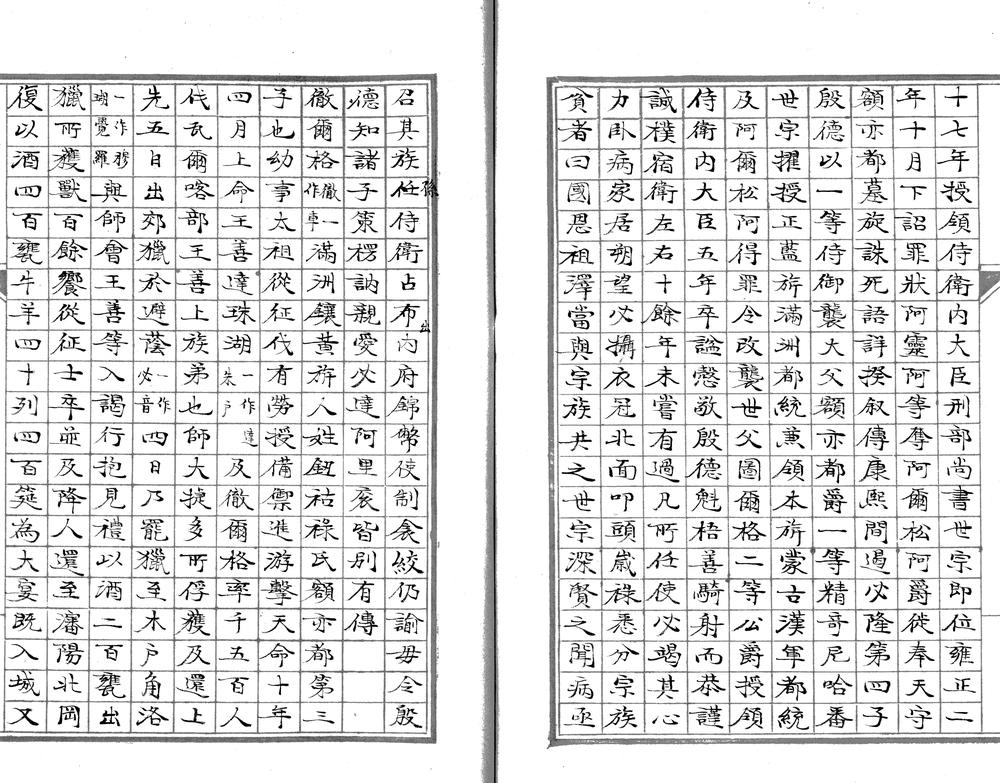 十七年授領侍衛内大臣刑部尚書世宗即位雍正二
年十月下詔罪狀阿靈阿等奪阿爾松阿爵徙奉天守
額亦都墓旋誅死語詳揆叙傳康熙間遏必隆第四子
殷德以一等侍御襲大父額亦都爵一等精奇尼哈番
世宗擢授正藍旂滿洲都統兼領本旂蒙古漢軍都統
及阿爾松阿得罪令改襲世父圖爾格二等公爵授領
侍衛内大臣五年卒諡慤敬殷德魁梧善騎射而恭謹
誠樸宿衛左右十餘年未嘗有過凡所任使必竭其心
力卧病家居朔望必攝衣冠北面叩頭歲祿悉分宗族
貧者曰國恩祖澤當與宗族共之世宗深賢之聞病亟
召其族孫任侍衛占布出内府錦幣使制衾絞仍諭毋令殷
德知諸子策楞訥親愛必達阿里衮皆别有傳
徹爾格徹一作車滿洲鑲黃旂人姓鈕祜祿氏額亦都第三
子也幼事太祖從征伐有勞授備禦進游擊天命十年
四月上命王善達珠湖朱一户作達及徹爾格率千五百人
伐瓦爾喀部王善上族弟也師大捷多所俘獲及還上
先五日出郊獵於避蔭必一音作四日乃罷獵至木户角洛
一作穆瑚覺羅與師會王善等入謁行抱見禮以酒二百甕出
獵所獲獸百餘饗從征士卒並及降人還至瀋陽北岡
復以酒四百甕牛羊四十列四百筵為大宴既入城又